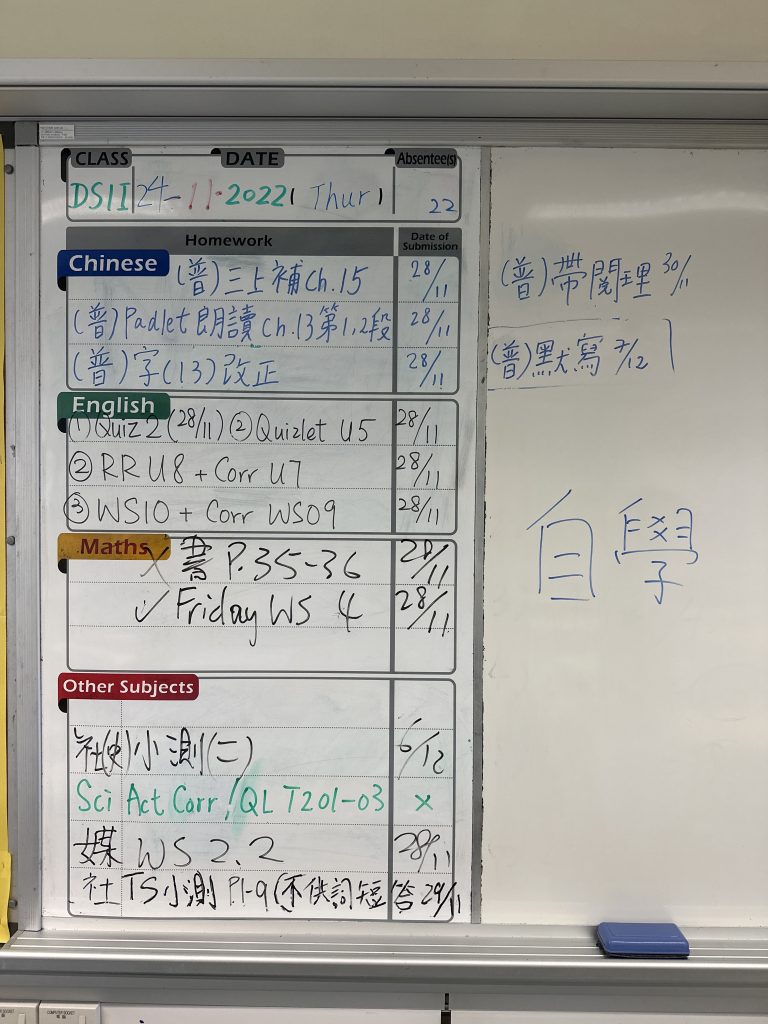 CLASS DATE Absentee(s)
DS1I 24-11-2022 (Thur) 22
Homework Date of Submission
Chinese
(普)三上補Ch.15 28/11
(普)Padlet朗讀Ch.13第1,2段 28/11
(普)字(13)改正 28/11
English
①Quiz 2 (28/11) ②Quizlet U5 28/11
②RR U8 + Corr U7 28/11
③WS10 + Corr WS09 28/11
Maths
書 P.35-36 28/11
✓ Friday WS 4 28/11
Other Subjects
社(史)小測(二) 6/12
Sci Act Corr / QL T201-03 x
媒 WS 2.2 28/11
社 TS小測 P1-9 (不供詞短答 29/11
(普)帶閱理 30/11
(普)默寫 7/12
自學